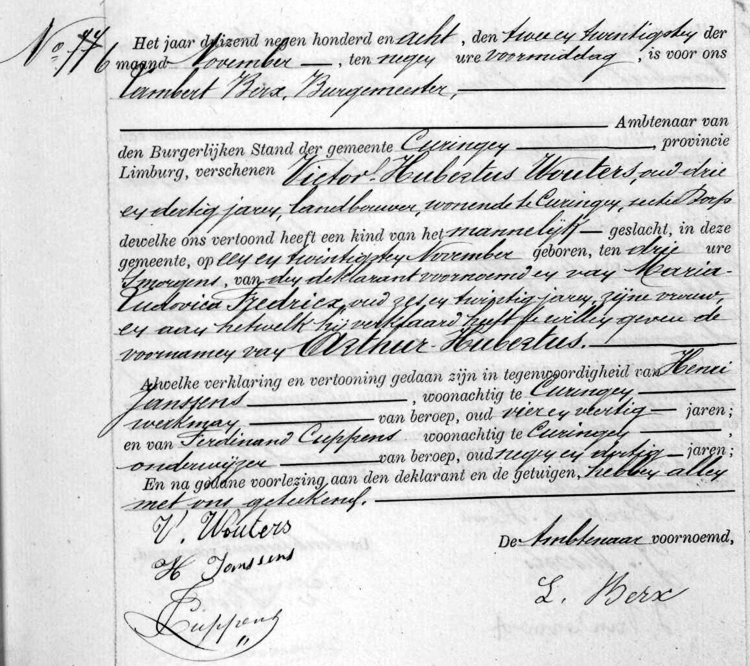 Het jaar duizend negen honderd en acht, den twee en twintigsten der
maand November —, ten negen ure voormiddag, is voor ons
Lambert Berx, Burgemeester,
Ambtenaar van
den Burgerlijken Stand der gemeente Curingen, provincie
Limburg, verschenen Victor Hubertus Wouters, oud drie
en dertig jaren, landbouwer, wonende te Curingen, sectie Dorp
dewelke ons vertoond heeft een kind van het mannelijk — geslacht, in deze
gemeente, op een en twintigsten November geboren, ten drie ure
smorgens, van den deklarant voornoemd en van Maria-
Ludovica Fredricx, oud zes en twintig jaren, zijne vrouw,
en aan hetwelk hij verklaard heeft te willen geven de
voornamen van Arthur-Hubertus.
Alwelke verklaring en vertooning gedaan zijn in tegenwoordigheid van Henri
Janssens, woonachtig te Curingen
werkman van beroep, oud vier en veertig — jaren;
en van Ferdinand Cuppens woonachtig te Curingen,
onderwijzer van beroep, oud negen en dertig — jaren;
En na gedane voorlezing aan den deklarant en de getuigen, hebben allen
met ons geteekend.
V. Wouters
De Ambtenaar voornoemd,
H Janssens
L. Berx
Cuppens